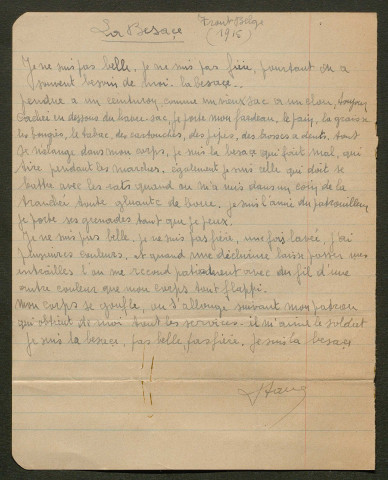 La Besaçe
Front Belge
(1916)
Je ne suis pas belle, je ne suis pas fière, pourtant on a
souvent besoin de moi. la besaçe.
pendue a un ceinturon, comme un vieux sac a un clou, toujours
cachée en dessous du havre-sac, je porte mon fardeau, le pain, la graisse
les bougies, le tabac, des cartouches, des pipes, des brosses a dents. tout
se mélange dans mon corps, je suis la besaçe qui fait mal, qui
tire pendant les marches. également je suis celle qui doit se
battre avec les rats quand on m'a mis dans un coin de la
tranchée toute gluante de boue. je suis l'amie du patrouilleur
je porte ses grenades tant que je peux.
Je ne suis pas belle, je ne suis pas fière, une fois lavée, j'ai
plusieures couleurs, et quand une déchirure laisse passer mes
entrailles l'on me recoud avec du fil d'une
autre couleur que mon corps tout flappi.
mon corps se gonfle, ou s'allonge suivant mon fardeau
qui obtient de moi tout les services. il m'aime le soldat
Je suis la besaçe, pas belle, pas fière. Je suis la besaçe